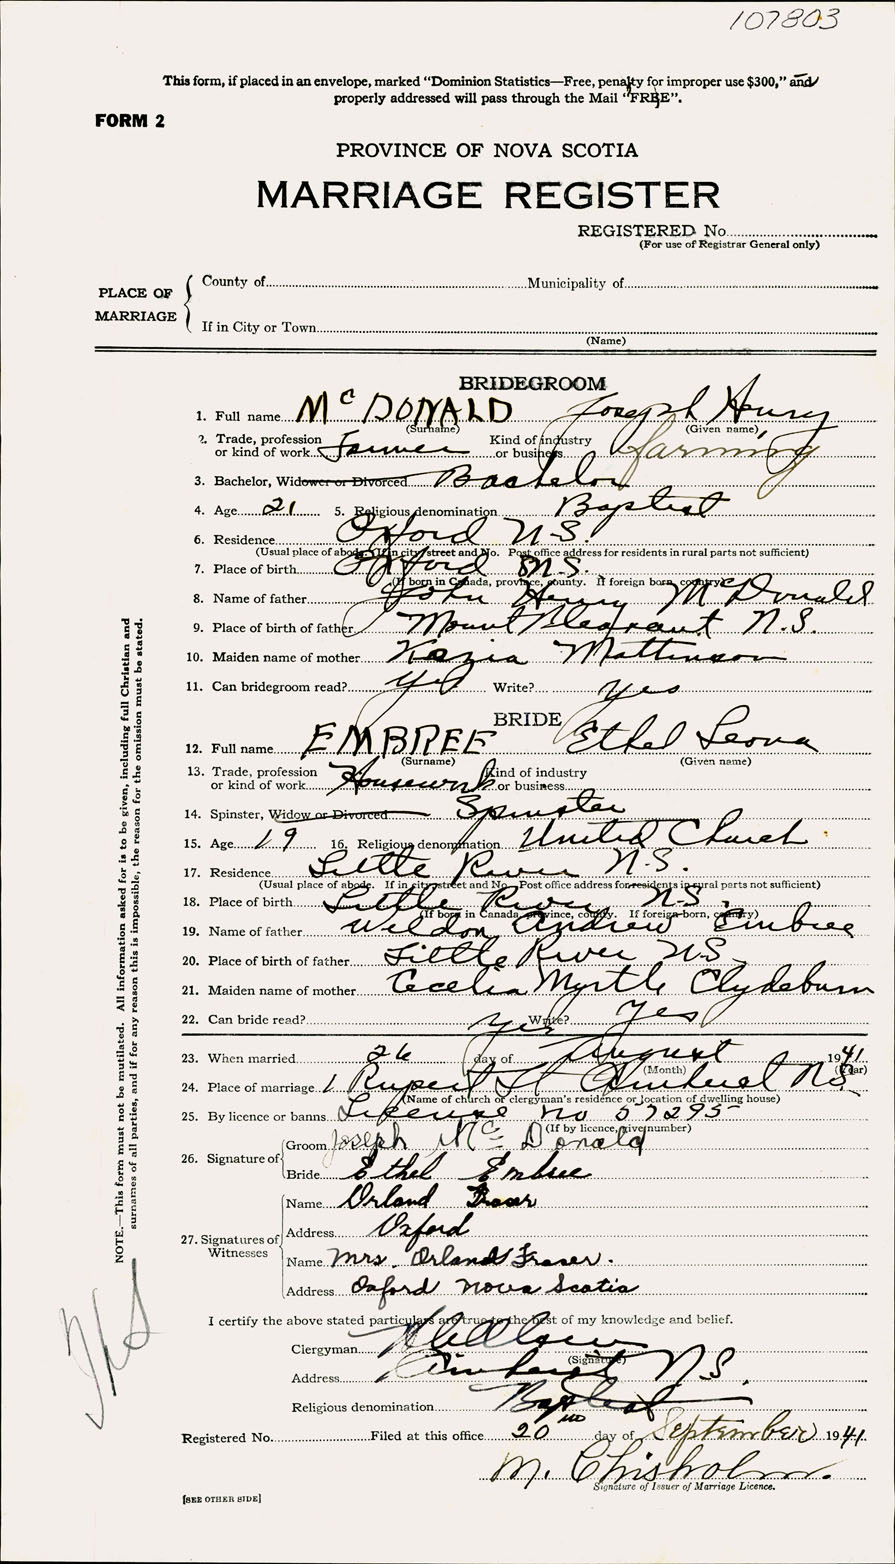 107803
This form, if placed in an envelope, marked "Dominion Statistics—Free, penalty for improper use $300," and
properly addressed will pass through the Mail "FREE".
FORM 2
PROVINCE OF NOVA SCOTIA
MARRIAGE REGISTER
REGISTERED No.
(For use of Registrar General only)
PLACE OF MARRIAGE
County of Municipality of
If in City or Town
(Name)
BRIDEGROOM
1. Full name McDONALD Joseph Henry
(Surname) (Given name)
2. Trade, profession or kind of work Farmer Kind of industry or business farming
3. Bachelor, Widower or Divorced Bachelor
4. Age 21 5. Religious denomination Baptist
6. Residence Oxford N.S.
(Usual place of abode. If in city street and No. Post office address for residents in rural parts not sufficient)
7. Place of birth Oxford N.S.
(If born in Canada, province, county. If foreign born, country)
8. Name of father John Henry McDonald
9. Place of birth of father Mount Pleasant N.S.
10. Maiden name of mother Kezia Mattinson
11. Can bridegroom read? yes Write? yes
BRIDE
12. Full name EMBREE Ethel Leona
(Surname) (Given name)
13. Trade, profession or kind of work Housework Kind of industry or business
14. Spinster, Widow or Divorced Spinster
15. Age 19 16. Religious denomination United Church
17. Residence Little River N.S.
(Usual place of abode. If in city street and No. Post office address for residents in rural parts not sufficient)
18. Place of birth Little River N.S.
(If born in Canada, province, county. If foreign-born, country)
19. Name of father Weldon Andrew Embree
20. Place of birth of father Little River N.S.
21. Maiden name of mother Cecelia Myrtle Clydeburn
22. Can bride read? yes Write? yes
23. When married 26 day of August 1941
(Month) (Year)
24. Place of marriage 1 Rupert St Amherst N.S.
(Name of church or clergyman's residence or location of dwelling house)
25. By licence or banns License no 57295
(If by licence, give number)
26. Signature of
Groom Joseph McDonald
Bride Ethel Embree
27. Signatures of Witnesses
Name Orland Fraser
Address Oxford
Name Mrs. Orland Fraser.
Address Oxford Nova Scotia
I certify the above stated particulars are true to the best of my knowledge and belief.
Clergyman
(Signature)
Address Amherst N.S.
Religious denomination Baptist
Registered No. Filed at this office 20 day of September 1941.
M. Chisholm.
Signature of Issuer of Marriage Licence.
[SEE OTHER SIDE]
NOTE.—This form must not be mutilated. All information asked for is to be given, including full Christian and
surnames of all parties, and if for any reason this is impossible, the reason for the omission must be stated.